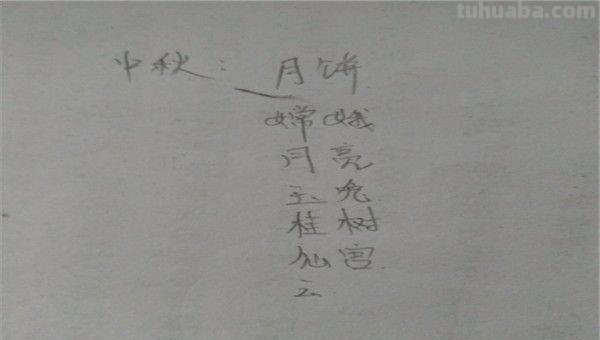 tuhuaba.com
中秋：月饼
嫦娥
月亮
玉兔
桂树
仙宫
云